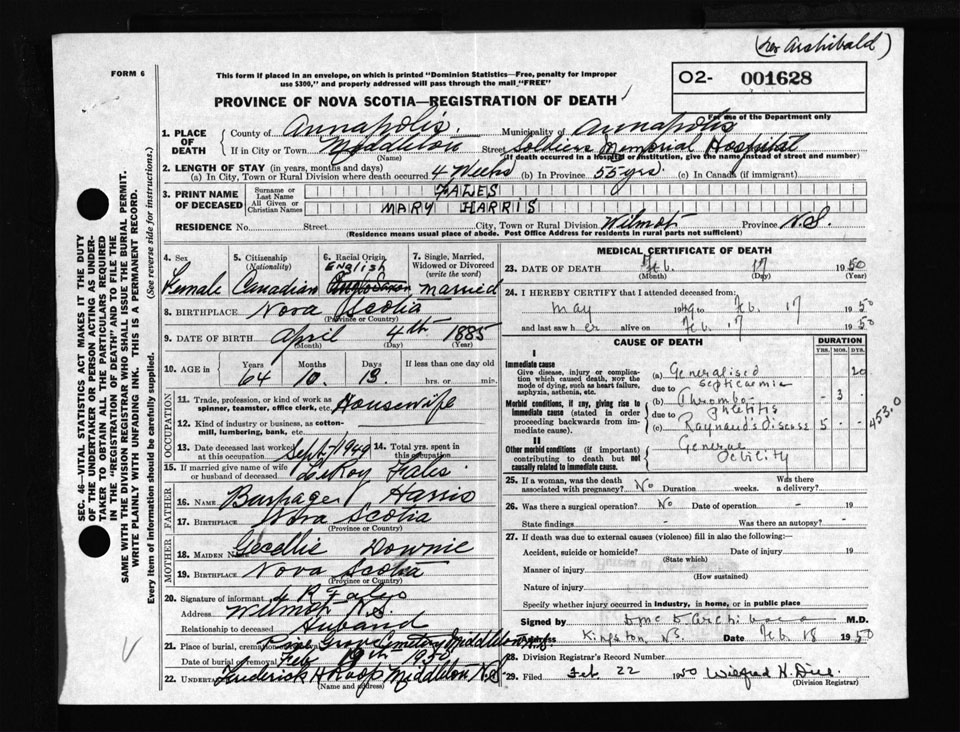 (Dr Archibald)
FORM 6
This form if placed in an envelope, on which is printed "Dominion Statistics—Free, penalty for improper
use $300," and properly addressed will pass through the mail "FREE"
02- 001628
For use of the Department only
PROVINCE OF NOVA SCOTIA—REGISTRATION OF DEATH
1. PLACE OF DEATH
County of Annapolis. Municipality of Annapolis
If in City or Town Middleton Street Soldiers Memorial Hospital
(Name) (If death occurred in a hospital or institution, give the name instead of street and number)
2. LENGTH OF STAY (in years, months and days)
(a) In City, Town or Rural Division where death occurred 4 Weeks (b) In Province 55 yrs. (c) In Canada (if immigrant)
3. PRINT NAME OF DECEASED
Surname or Last Name FALES
All Given or Christian Names MARY HARRIS
RESIDENCE No. Street City, Town or Rural Division Wilmot Province N.S.
(Residence means usual place of abode. Post Office Address for residents in rural parts not sufficient)
4. Sex Female
5. Citizenship (Nationality) Canadian
6. Racial Origin English
7. Single, Married, Widowed or Divorced (write the word) married
8. BIRTHPLACE Nova Scotia
(Province or Country)
9. DATE OF BIRTH April 4th 1885
(Month) (Day) (Year)
10. AGE in Years Months Days If less than one day old
64 10. 13. hrs. or min.
OCCUPATION
11. Trade, profession, or kind of work as spinner, teamster, office clerk, etc. Housewife
12. Kind of industry or business, as cotton-mill, lumbering, bank, etc.
13. Date deceased last worked at this occupation Sept/1949
14. Total yrs. spent in this occupation
15. If married give name of wife or husband of deceased LeRoy Fales
FATHER
16. NAME Harris
17. BIRTHPLACE Nova Scotia
(Province or Country)
MOTHER
18. MAIDEN NAME Downie
19. BIRTHPLACE Nova Scotia
(Province or Country)
20. Signature of informant L R Fales
Address Wilmot N.S.
Relationship to deceased Husband
21. Place of burial, cremation or removal Pine Grove Cemetery Middleton N.S.
Date of burial or removal Feb 19th 1950
22. UNDERTAKER Frederick H Roop Middleton N.S.
(Name and address)
MEDICAL CERTIFICATE OF DEATH
23. DATE OF DEATH Feb. 17 1950
(Month) (Day) (Year)
24. I HEREBY CERTIFY that I attended deceased from:
May 1949 to Feb. 17 1950
and last saw her alive on Feb. 17 1950
CAUSE OF DEATH
DURATION
YRS. MOS. DYS.
I
Immediate cause
Give disease, injury or complication which caused death, NOT the mode of dying, such as heart failure, asphyxia, asthenia, etc.
(a) Generalised septicaemia 20
due to
Morbid conditions, if any, giving rise to immediate cause (stated in order proceeding backwards from immediate cause).
(b) Thrombo-phlebitis - 3 -
due to
(c) Raynaud's Disease 5 - -
453.0
II
Other morbid conditions (if important) contributing to death but not causally related to immediate cause.
General Debility
25. If a woman, was the death associated with pregnancy? No Duration weeks. Was there a delivery?
26. Was there a surgical operation? No Date of operation - 19
State findings - Was there an autopsy? -
27. If death was due to external causes (violence) fill in also the following:—
Accident, suicide or homicide? Date of injury 19
(State which)
Manner of injury
(How sustained)
Nature of injury
Specify whether injury occurred in industry, in home, or in public place
Signed by Archibald M.D.
Address Kingston, N.S. Date Feb 18 1950
28. Division Registrar's Record Number
29. Filed Feb. 22 1950
(Division Registrar)
SEC. 46—VITAL STATISTICS ACT MAKES IT THE DUTY
OF THE UNDERTAKER OR PERSON ACTING AS UNDER-
TAKER TO OBTAIN ALL THE PARTICULARS REQUIRED
IN THE "REGISTRATION OF DEATH" AND TO FILE THE
SAME WITH THE DIVISION REGISTRAR WHO SHALL ISSUE THE BURIAL PERMIT.
WRITE PLAINLY WITH UNFADING INK. THIS IS A PERMANENT RECORD.
Every item of information should be carefully supplied. (See reverse side for instructions.)